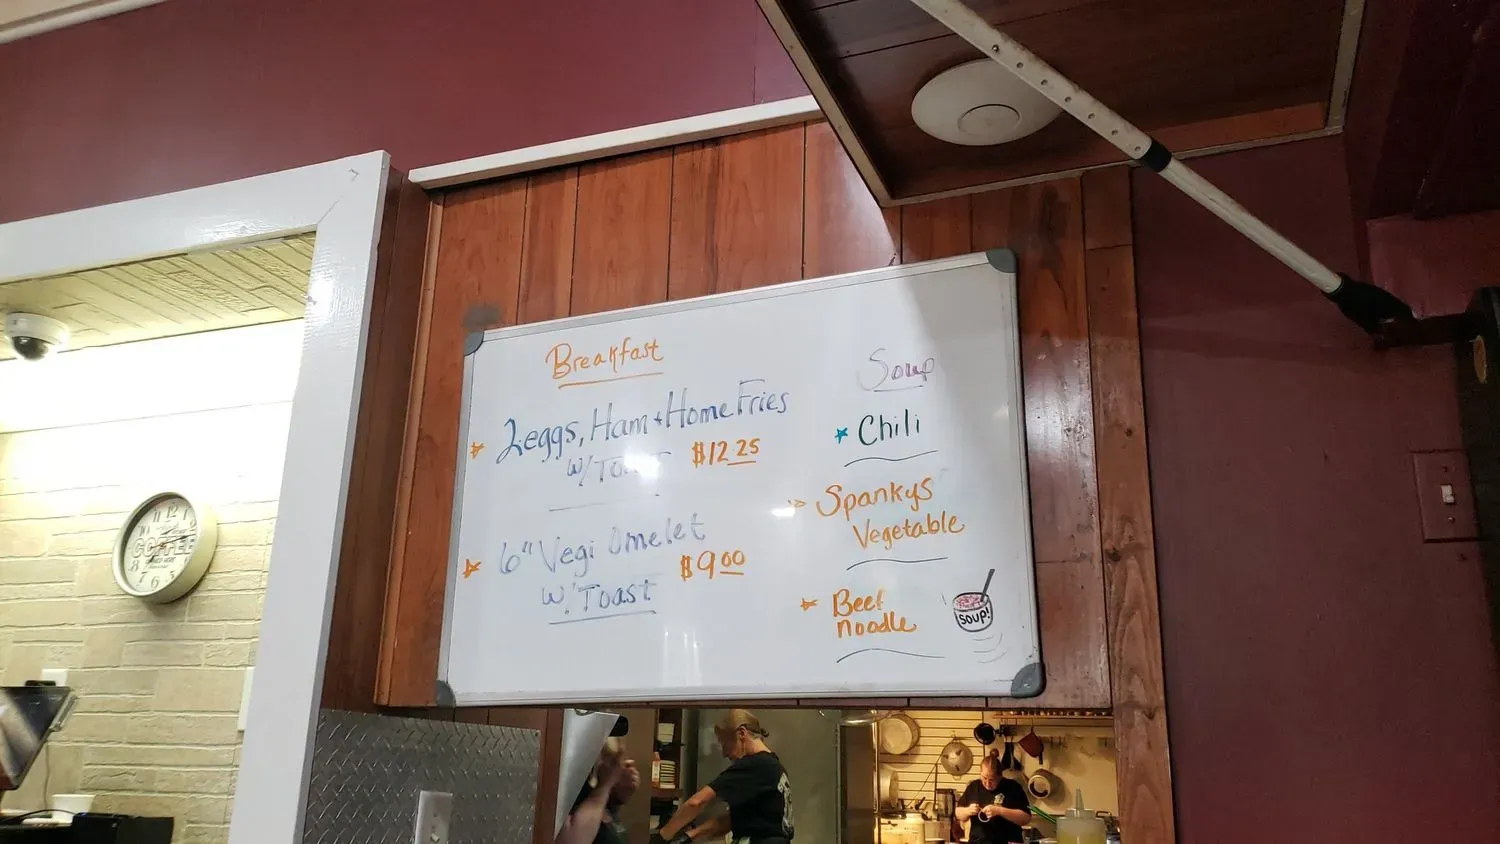 Breakfast
2eggs, Ham + Home Fries
w/Toast $12.25
6" Vegi Omelet
w/Toast $9.00
Soup
Chili
Spankys
Vegetable
Beef
Noodle
SOUP!
COFFEE